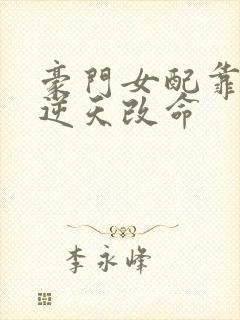 豪門女配靠
逆天改命
李永峰